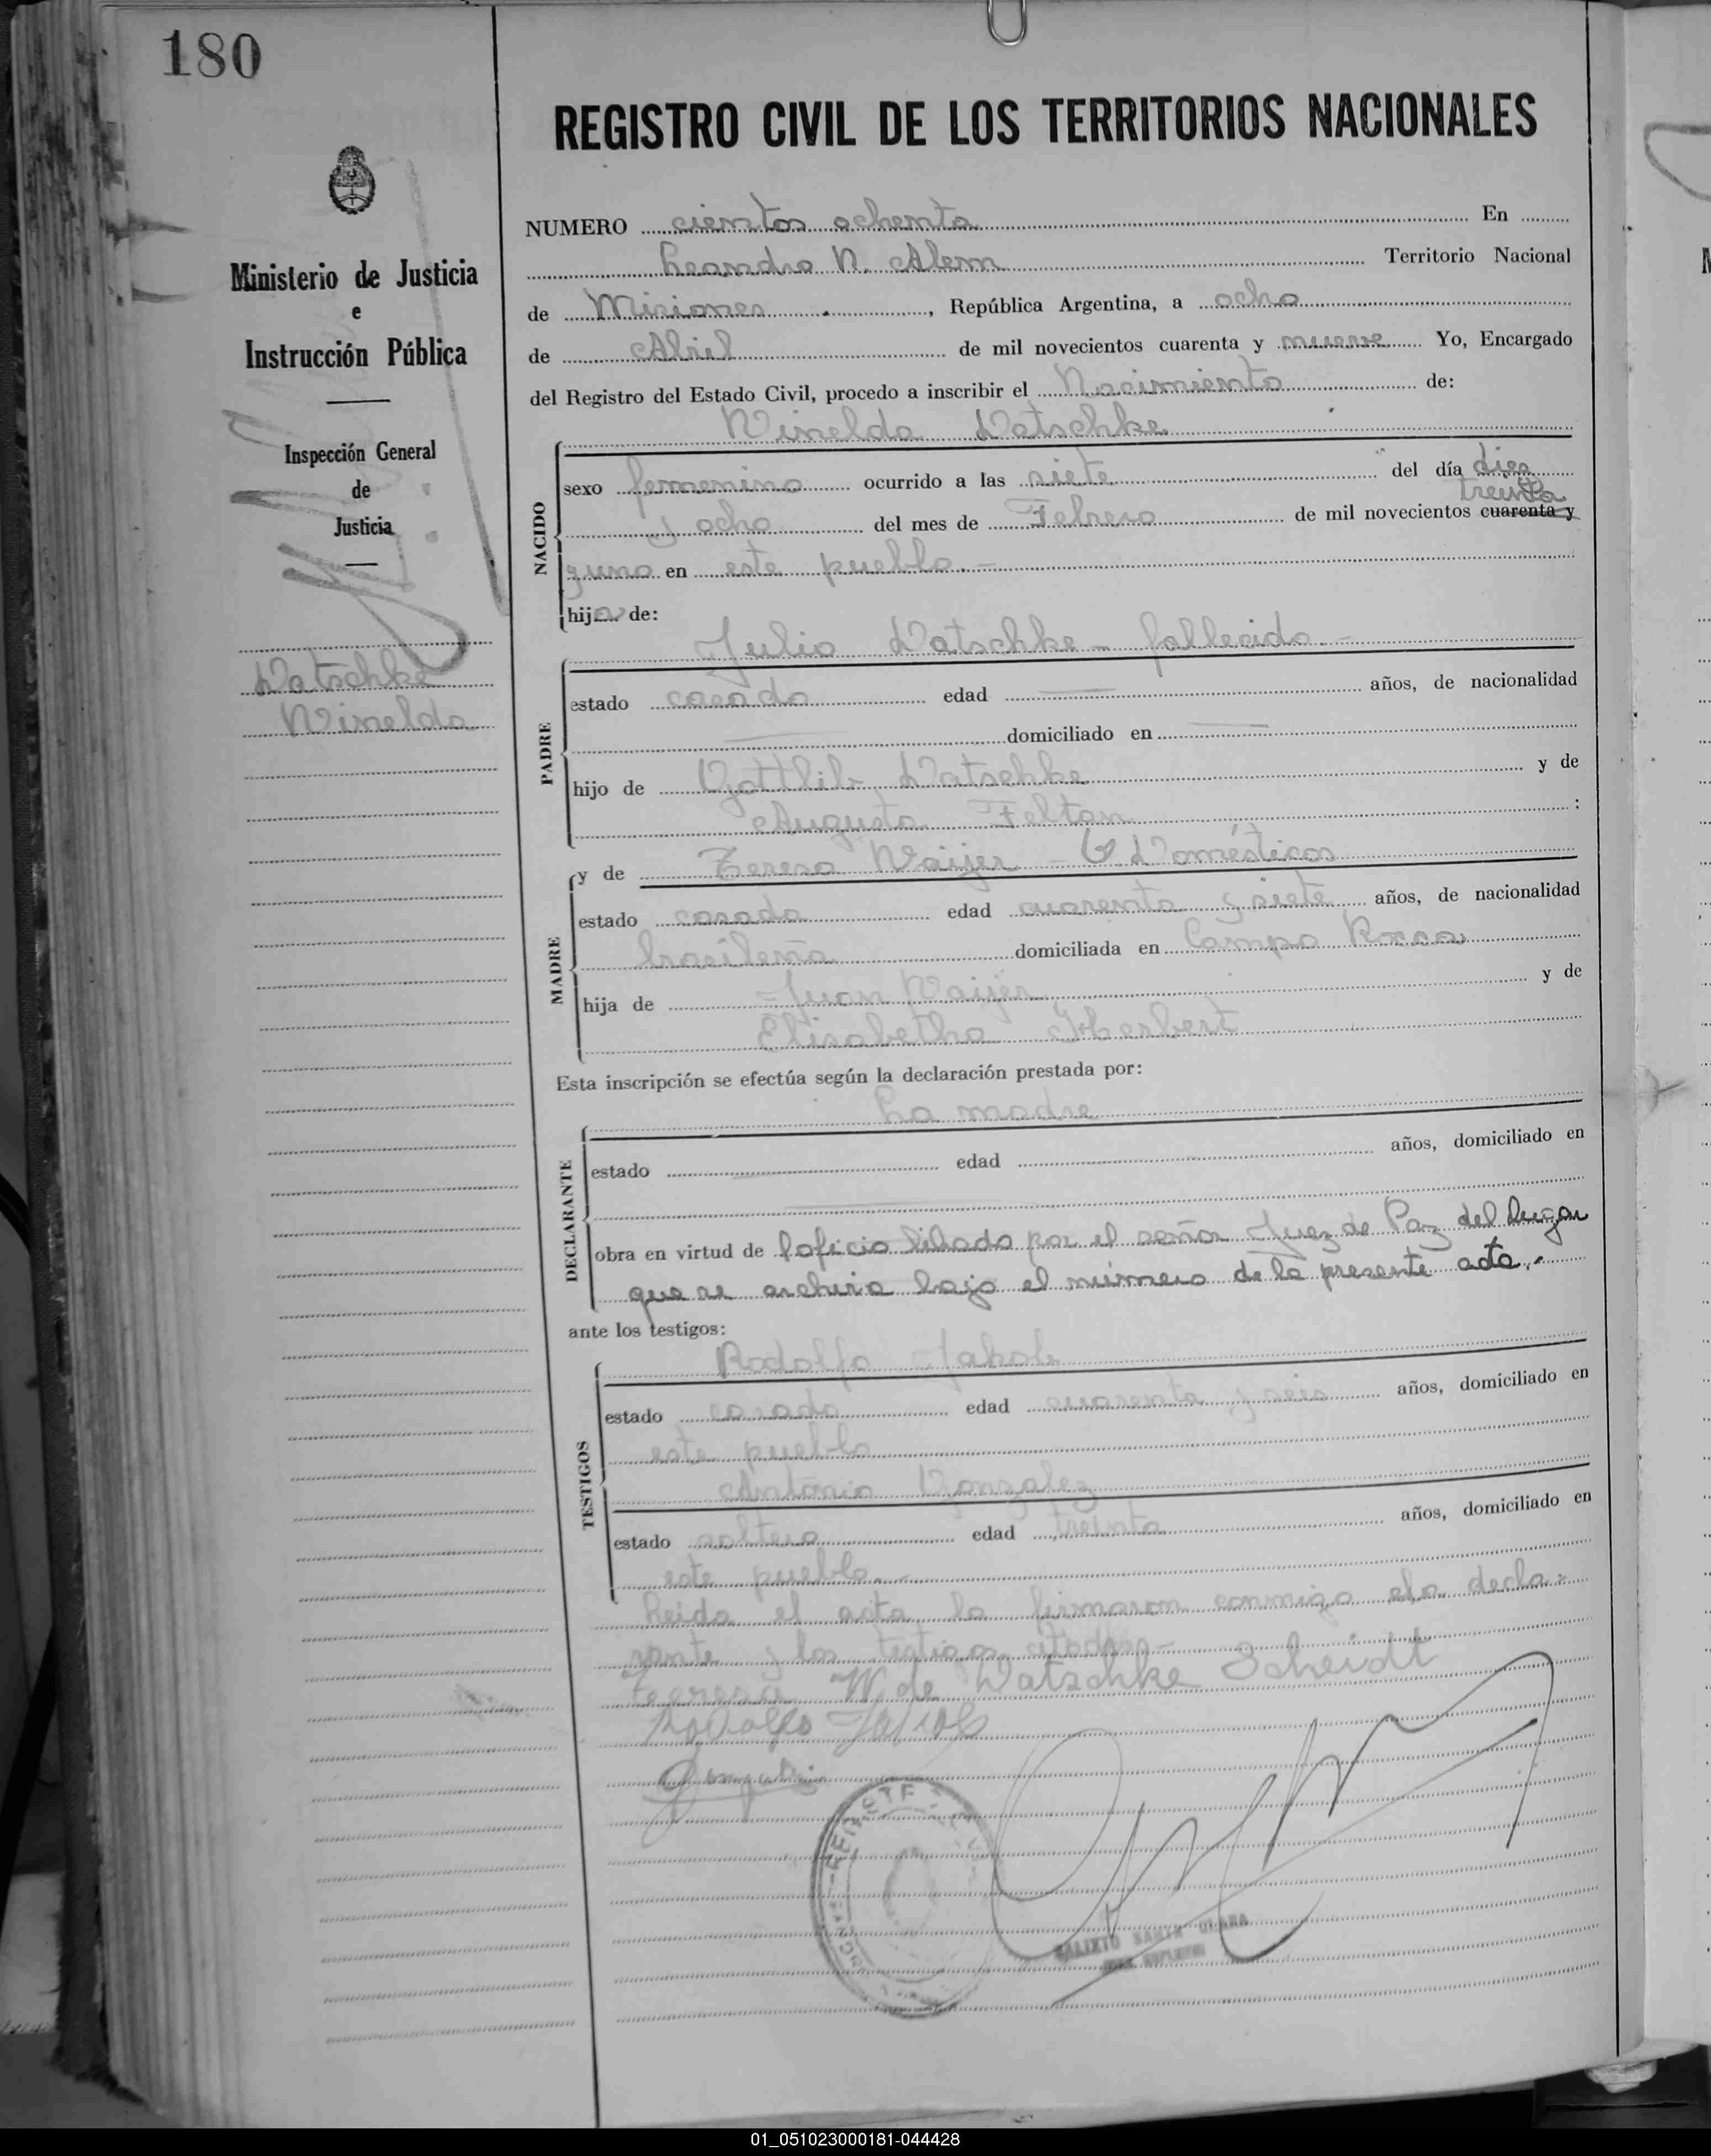 180
REGISTRO CIVIL DE LOS TERRITORIOS NACIONALES
Ministerio de Justicia
e
Instrucción Pública
Inspección General
de
Justicia
Datschke
Winelda
NUMERO cientos ochenta En
Leandro N. Alem Territorio Nacional
de Misiones, República Argentina, a ocho
de Abril de mil novecientos cuarenta y nueve Yo, Encargado
del Registro del Estado Civil, procedo a inscribir el Nacimiento de:
Winelda Datschke
NACIDO
sexo femenino ocurrido a las siete del día diez
treinta
y ocho del mes de Febrero de mil novecientos cuarenta y
y uno en este pueblo.-
hija de:
PADRE
Julio Datschke - fallecido.-
estado casado edad años, de nacionalidad
domiciliado en
hijo de Gottlib Datschke y de
Augusta Feltan :
MADRE
y de Teresa Waijer - Domésticos
estado casada edad cuarenta y siete años, de nacionalidad
brasileña domiciliada en Campo Rocca
hija de Juan Waijer y de
Elisabetha Herbert
Esta inscripción se efectúa según la declaración prestada por:
DECLARANTE
La madre
estado edad años, domiciliado en
obra en virtud de oficio librado por el señor Juez de Paz del lugar
que se archiva bajo el número de la presente acta.-
ante los testigos:
TESTIGOS
Rodolfo Jakob
estado casado edad cuarenta y seis años, domiciliado en
este pueblo
Antonio Gonzalez
estado soltero edad treinta años, domiciliado en
este pueblo.-
Leida el acta la firmaron conmigo la decla-
rante y los testigos citados.-
Teresa W. de Datschke Scheidt
Rodolfo Jakob
Gonzalez
CALIXTO SANTA CLARA
JUEZ SUPLENTE
01_051023000181-044428